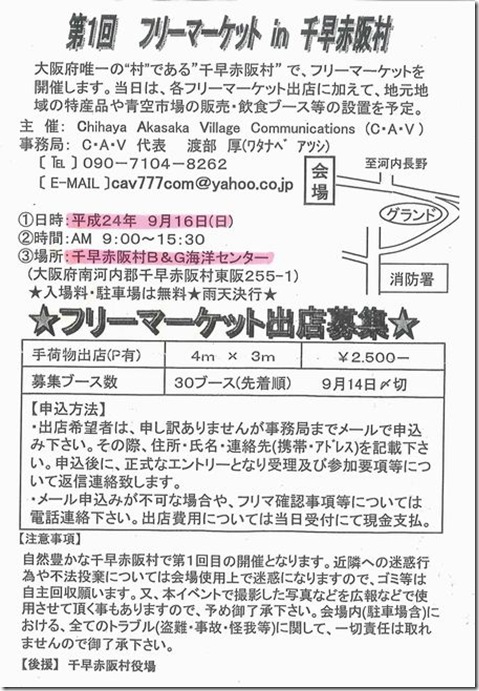 第1回 フリーマーケット in 千早赤阪村
大阪府唯一の“村”である”千早赤阪村” で、フリーマーケットを
開催します。当日は、各フリーマーケット出店に加えて、地元地
域の特産品や青空市場の販売・飲食ブース等の設置を予定。
主 催: Chihaya Akasaka Village Communications (C・A・V)
事務局: C・A・V 代表 渡部 厚(ワタナベ アツシ)
〔 ℡ 〕 090-7104-8262
〔 E-MAIL 〕cav777com@yahoo.co.jp
会場
至河内長野
グランド
消防署
①日時:平成24年 9月16日(日)
②時間:AM 9:00~15:30
③場所:千早赤阪村B&G海洋センター
(大阪府南河内郡千早赤阪村東阪255-1)
★入場料・駐車場は無料★雨天決行★
★フリーマーケット出店募集★
手荷物出店(P有) 4m × 3m ¥2.500-
募集ブース数 30ブース(先着順) 9月14日〆切
【申込方法】
・出店希望者は、申し訳ありませんが事務局までメールで申込
み下さい。その際、住所・氏名・連絡先(携帯・アドレス)を記載下さ
い。申込後に、正式なエントリーとなり受理及び参加要項等につ
いて返信連絡致します。
・メール申込みが不可な場合や、フリマ確認事項等については
電話連絡下さい。出店費用については当日受付にて現金支払。
【注意事項】
自然豊かな千早赤阪村で第1回目の開催となります。近隣への迷惑行
為や不法投棄については会場使用上で迷惑になりますので、ゴミ等は
自主回収願います。又、本イベントで撮影した写真などを広報などで使
用させて頂く事もありますので、予め御了承下さい。会場内(駐車場含)に
おける、全てのトラブル(盗難・事故・怪我等)に関して、一切責任は取れ
ませんので御了承下さい。
【後援】 千早赤阪村役場